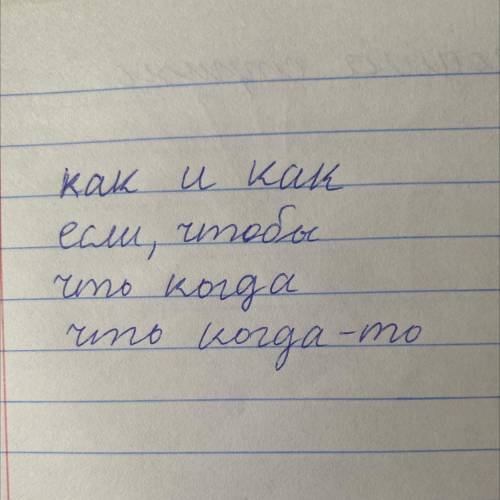 как и как
если, чтобы
что когда
что когда-то